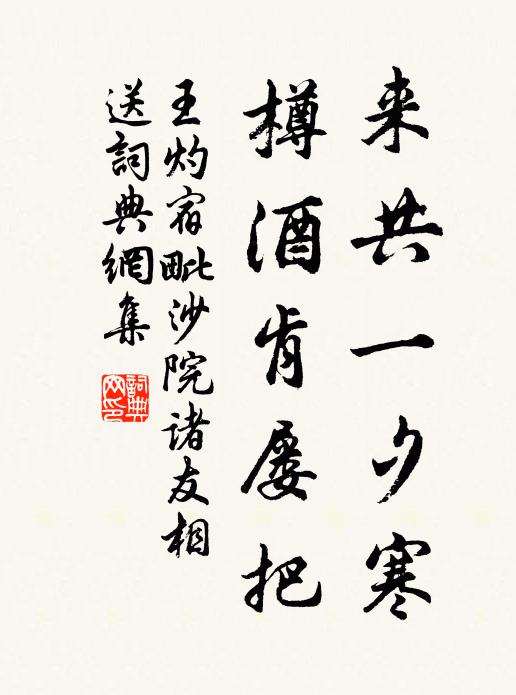 来共一夕寒
樽酒肯屡把
王灼宿毗沙院诸友相
送詞典網集
詞典网印